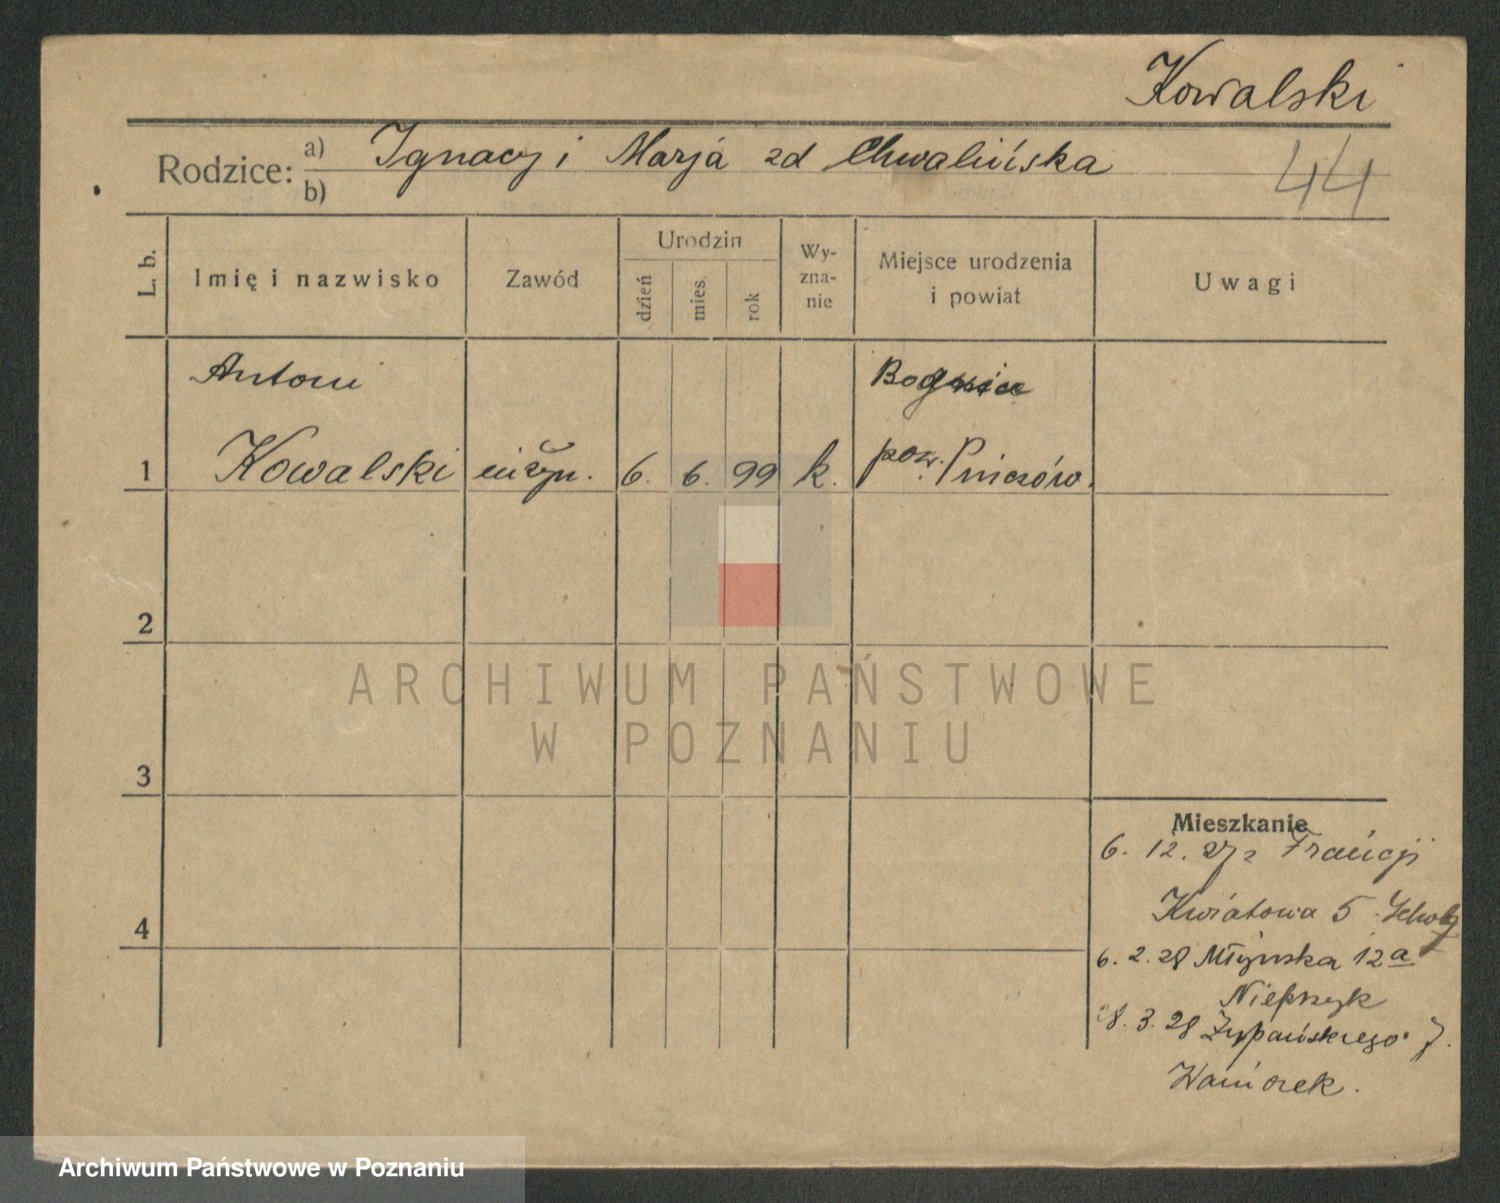 Kowalski
Rodzice: a) Ignacy i Marja zd Chwalińska
b)
44
L. b.
Imię i nazwisko
Zawód
Urodzin
dzień
mies.
rok
Wy-
zna-
nie
Miejsce urodzenia
i powiat
Uwagi
Antoni
Kowalski
inżyn.
6. 6. 99
k.
pow. Pińczów.
1
2
3
4
ARCHIWUM PAŃSTWOWE
W POZNANIU
Mieszkanie
6. 12. 27 z Francji
Kwiatowa 5
6. 2. 28 Młyńska 12a
28. 3. 28 Żupańskiego 7.
Archiwum Państwowe w Poznaniu